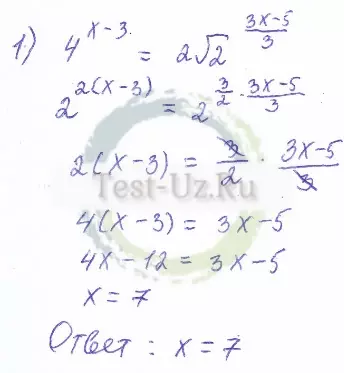 1) 4^(x-3) = 2√2^((3x-5)/3)
2^(2(x-3)) = 2^(3/2 · (3x-5)/3)
2(x-3) = 3/2 · (3x-5)/3
Test-Uz.Ru
4(x-3) = 3x-5
4x-12 = 3x-5
x = 7
Ответ : x = 7